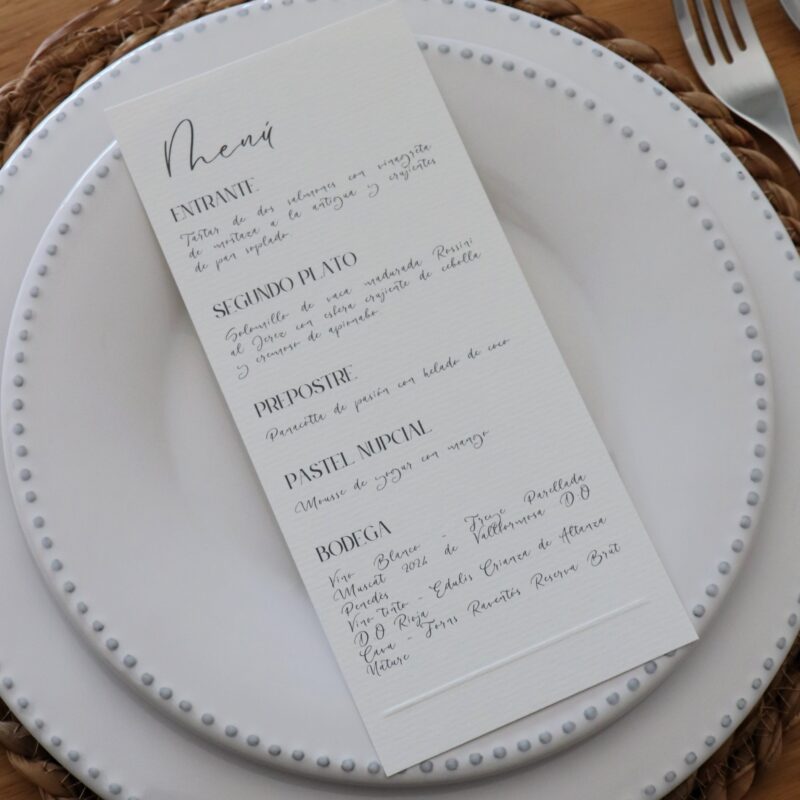 Menú
ENTRANTE
Tartar de dos salmones con vinagreta
de mostaza a la antigua y crujientes
de pan soplado.
SEGUNDO PLATO
Solomillo de vaca madurada Rossini
al Jerez con esfera crujiente de cebolla
y cremoso de apionabo
PREPOSTRE
Panacotta de pasión con helado de coco
PASTEL NUPCIAL
Mousse de yogur con mango
BODEGA
Vino Blanco - Parellada
Muscat 2024 de Vallformosa D.O
Penedès
Vino tinto - Edulis Crianza de Altanza
D.O Rioja
Cava - Torns Raventós Reserva Brut
Nature